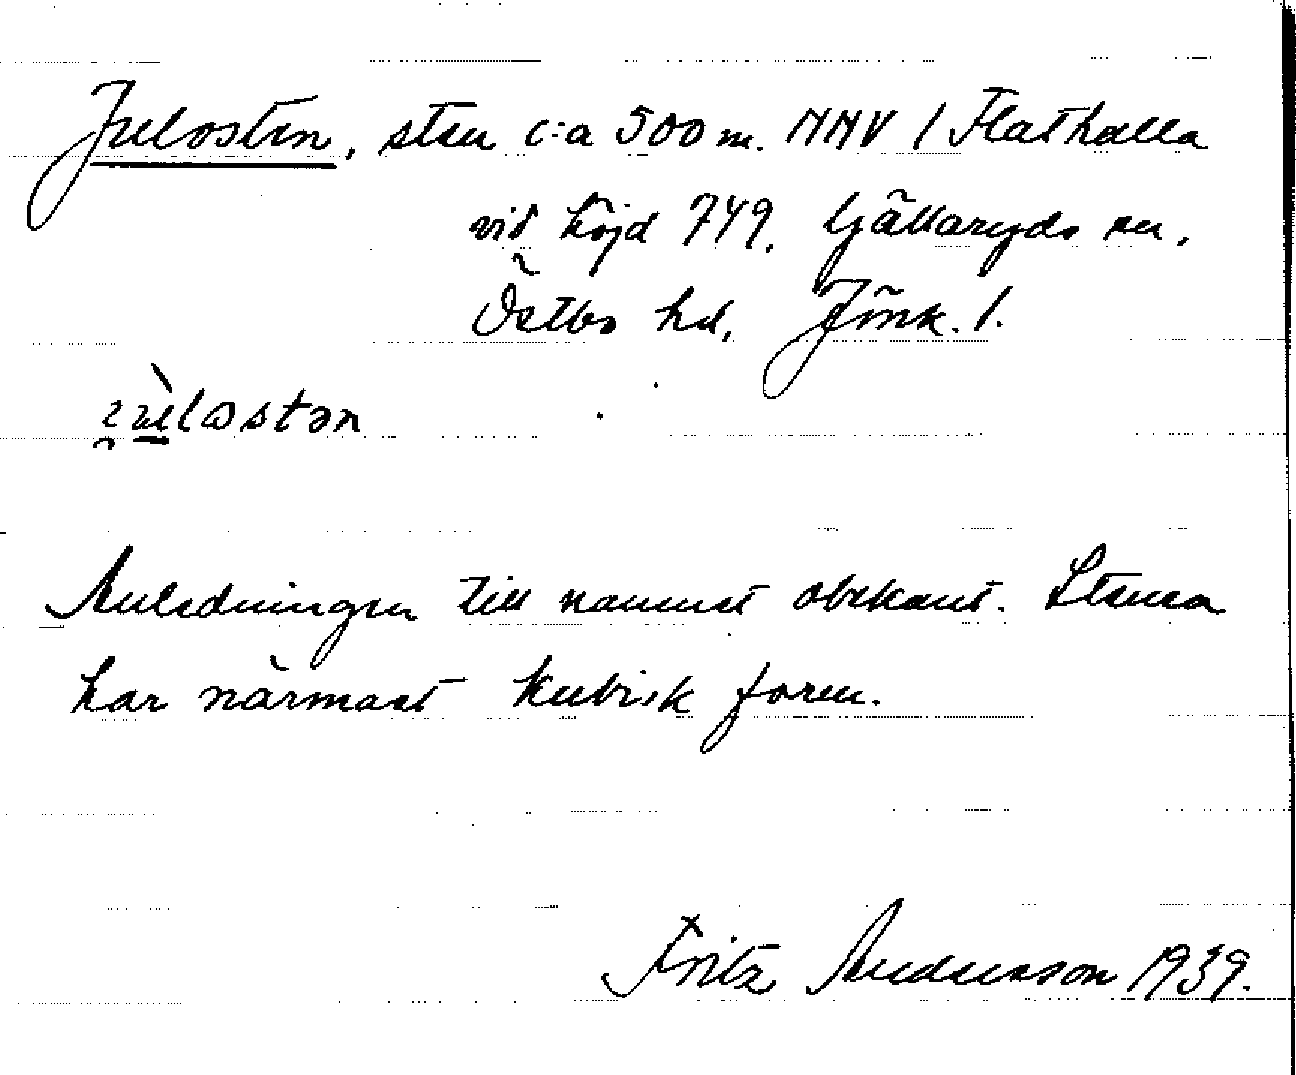 Julosten, sten c:a 500 m. NNV / Flathalla
vid höjd 749. Gällaryds sn.
Östbo hd, Jönk. l.
Anledningen till namnet obekant. Stenen
har närmast kubisk form.
Fritz Andersson 1939.